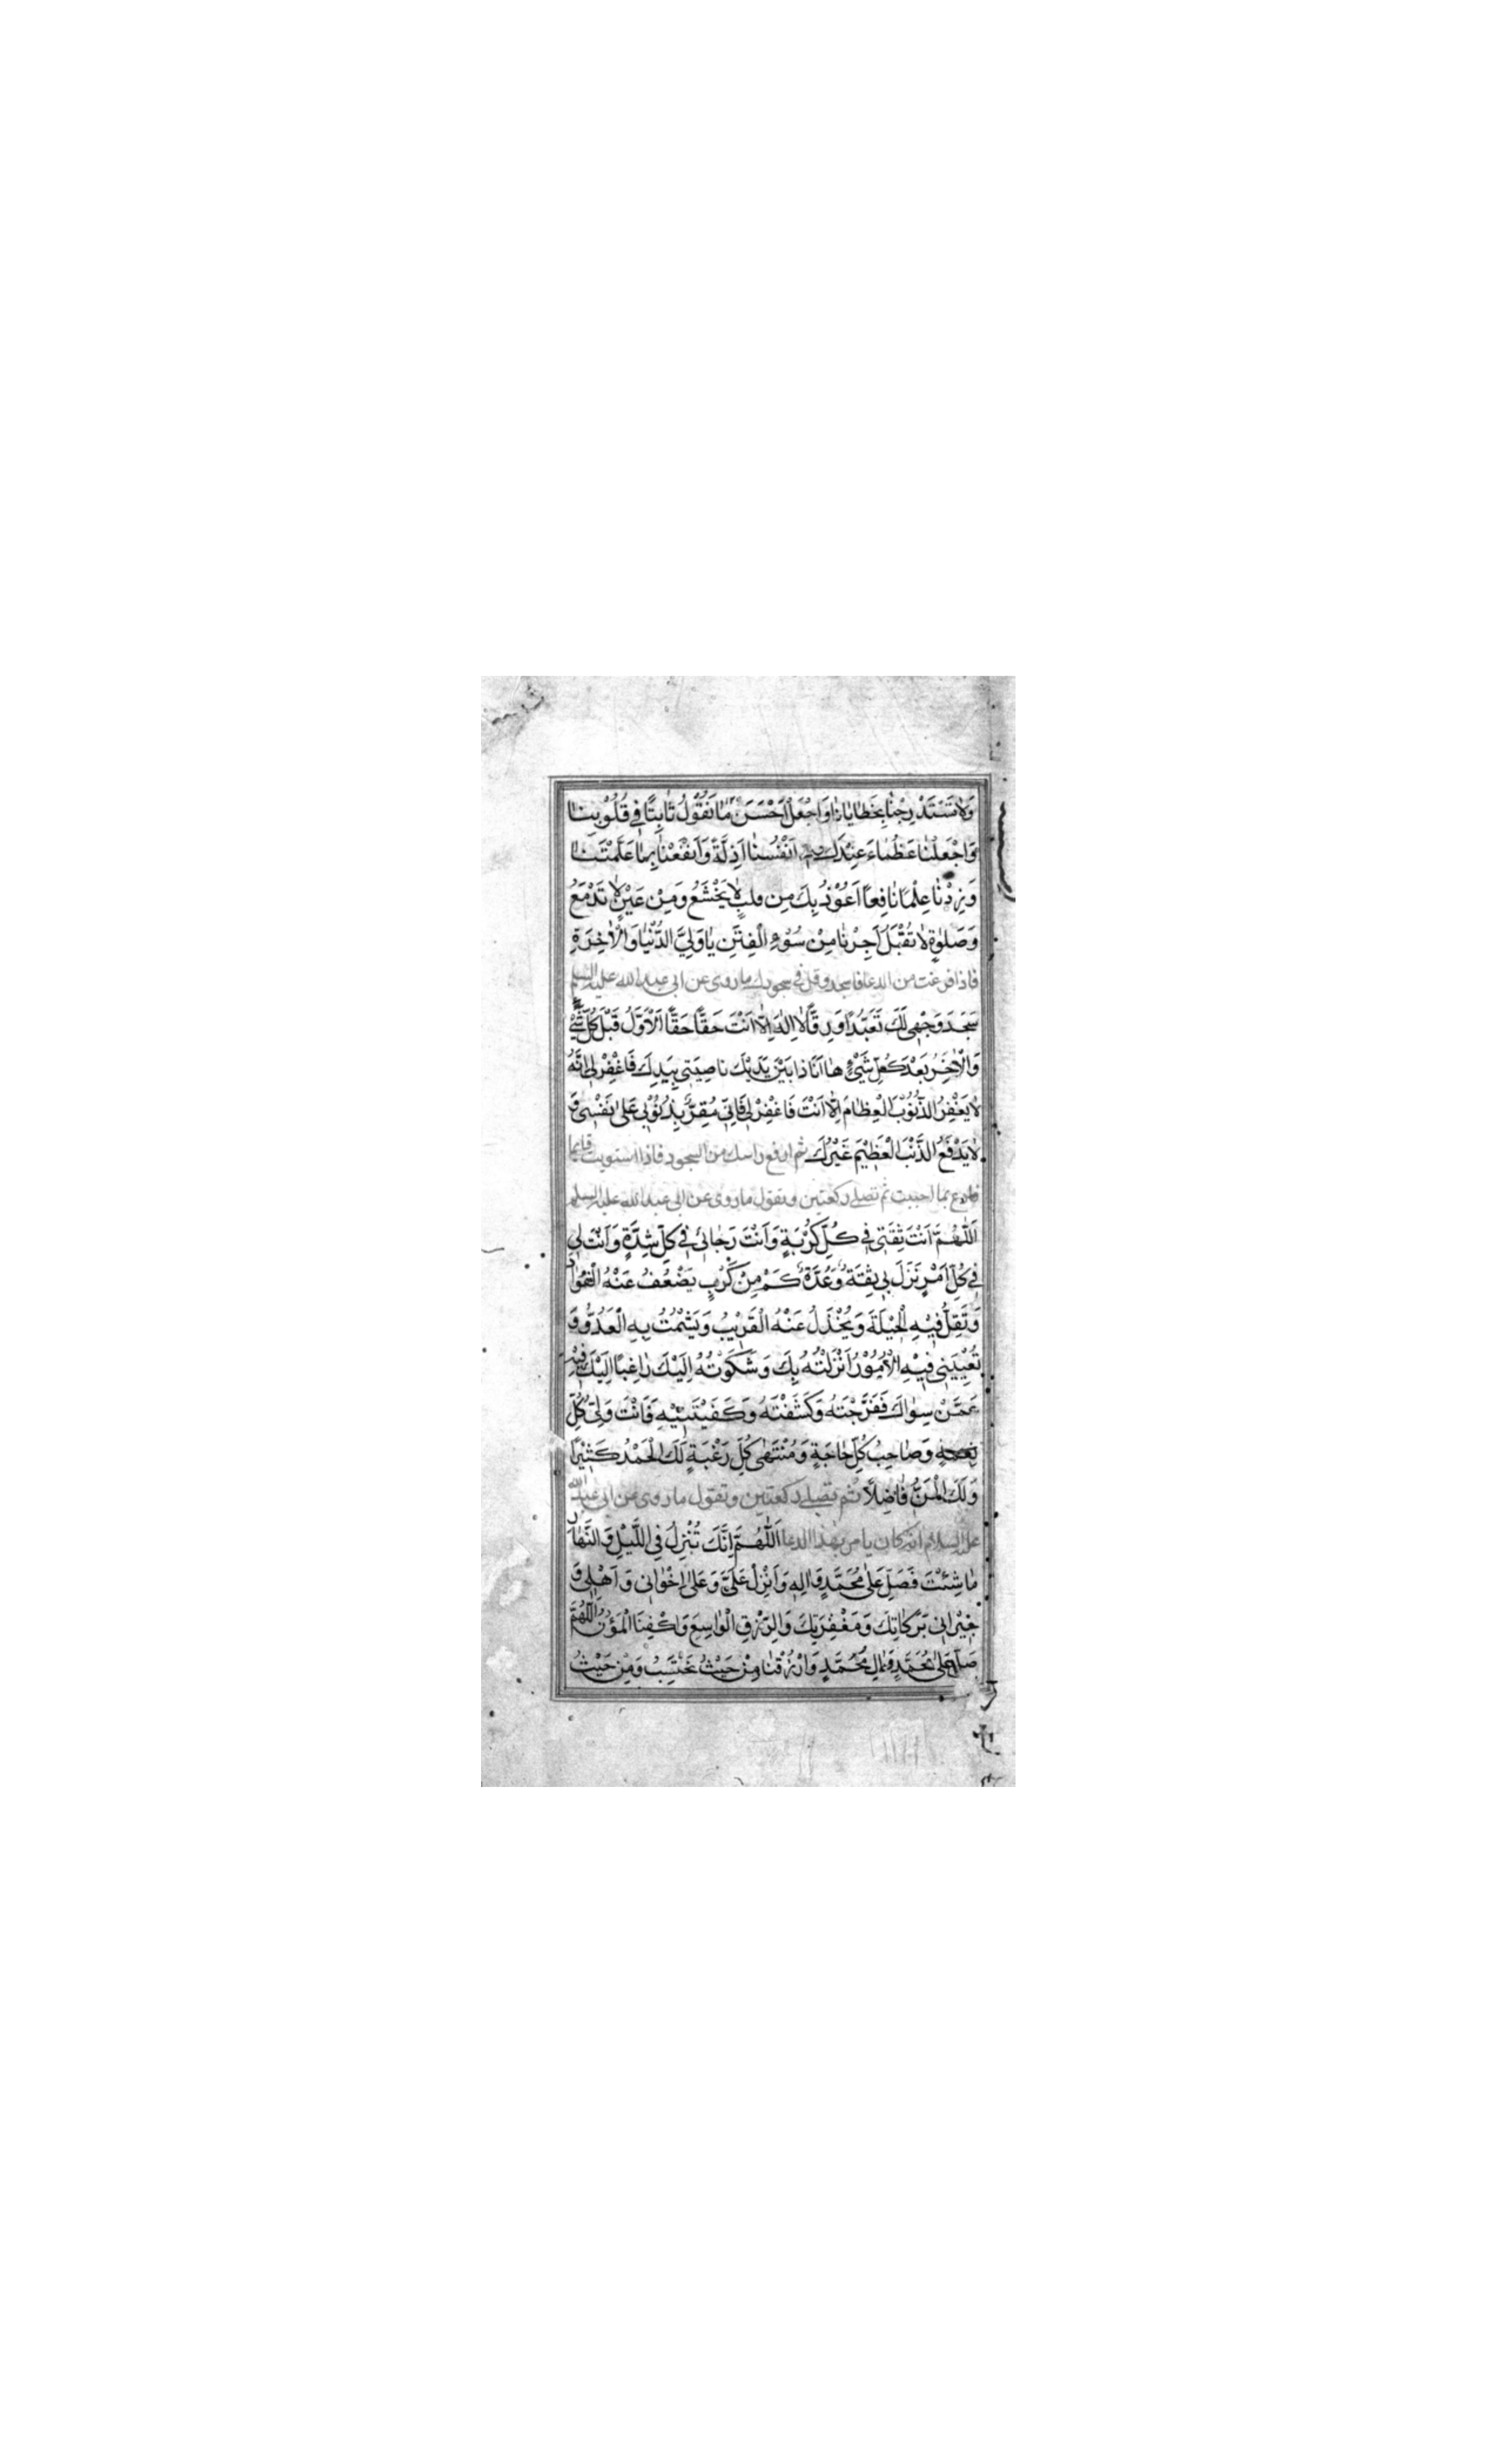 وَلَا تَسْتَدْرِجْنَا بِخَطَايَانَا وَاجْعَلْ اَحْسَنَ مَا نَقُوْلُ ثَابِتًا فِي قُلُوْبِنَا
وَاجْعَلْنَا عُظَمَاءَ عِنْدَكَ اَنْفُسَنَا اَذِلَّةً وَانْفَعْنَا بِمَا عَلَّمْتَنَا
وَزِدْنَا عِلْمًا نَافِعًا اَعُوْذُ بِكَ مِن قَلْبٍ لَا يَخْشَعُ وَمِنْ عَيْنٍ لَا تَدْمَعُ
وَصَلٰوةٍ لَا تُقْبَلُ اَجِرْنَا مِنْ سُوْءِ الْفِتَنِ يَا وَلِيَّ الدُّنْيَا وَالْاٰخِرَةِ
فاذا فرغت من الدعا فاسجد وقل في سجودك ما روى عن ابى عبد الله عليه السلم
سَجَدَ وَجْهِي لَكَ تَعَبُّدًا وَرِقًّا لَا اِلٰهَ اِلَّا اَنْتَ حَقًّا حَقًّا اَلْاَوَّلُ قَبْلَ كُلِّ شَيْءٍ
وَالْاٰخِرُ بَعْدَ كُلِّ شَيْءٍ هَا اَنَا ذَا بَيْنَ يَدَيْكَ نَاصِيَتِي بِيَدِكَ فَاغْفِرْ لِي اِنَّهُ
لَا يَغْفِرُ الذُّنُوْبَ الْعِظَامَ اِلَّا اَنْتَ فَاغْفِرْ لِي فَاِنِّي مُقِرٌّ بِذُنُوْبِي عَلٰى نَفْسِي وَ
لَا يَدْفَعُ الذَّنْبَ الْعَظِيْمَ غَيْرُكَ ثم ارفع راسك من السجود فاذا استويت قايما
فادع بما احببت ثم تصلى ركعتين وتقول ما روى عن ابى عبد الله عليه السلم
اَللّٰهُمَّ اَنْتَ ثِقَتِي فِي كُلِّ كُرْبَةٍ وَاَنْتَ رَجَائِي فِي كُلِّ شِدَّةٍ وَاَنْتَ لِي
فِي كُلِّ اَمْرٍ نَزَلَ بِي ثِقَةٌ وَعُدَّةٌ كَمْ مِنْ كَرْبٍ يَضْعُفُ عَنْهُ الْفُؤَادُ
وَتَقِلُّ فِيْهِ الْحِيْلَةُ وَيُخْذَلُ عَنْهُ الْقَرِيْبُ وَيَشْمُتُ بِهِ الْعَدُوُّ وَ
تُعْيِيْنِي فِيْهِ الْاُمُوْرُ اَنْزَلْتُهُ بِكَ وَشَكَوْتُهُ اِلَيْكَ رَاغِبًا اِلَيْكَ فِيْهِ
عَمَّنْ سِوَاكَ فَفَرَّجْتَهُ وَكَشَفْتَهُ وَكَفَيْتَنِيْهِ فَاَنْتَ وَلِيُّ كُلِّ
نِعْمَةٍ وَصَاحِبُ كُلِّ حَاجَةٍ وَمُنْتَهٰى كُلِّ رَغْبَةٍ لَكَ الْحَمْدُ كَثِيْرًا
وَلَكَ الْمَنُّ فَاضِلًا ثم تصلى ركعتين وتقول ما روى عن ابى عبد الله
عليه السلام انه كان يامر بهذا الدعا اَللّٰهُمَّ اِنَّكَ تُنْزِلُ فِي اللَّيْلِ وَالنَّهَارِ
مَا شِئْتَ فَصَلِّ عَلٰى مُحَمَّدٍ وَاٰلِهِ وَاَنْزِلْ عَلَيَّ وَعَلٰى اِخْوَانِي وَاَهْلِي وَ
جِيْرَانِي بَرَكَاتِكَ وَمَغْفِرَتِكَ وَالرِّزْقِ الْوَاسِعِ وَاكْفِنَا الْمُؤَنَ اَللّٰهُمَّ
صَلِّ عَلٰى مُحَمَّدٍ وَاٰلِ مُحَمَّدٍ وَارْزُقْنَا مِنْ حَيْثُ نَحْتَسِبُ وَمِنْ حَيْثُ